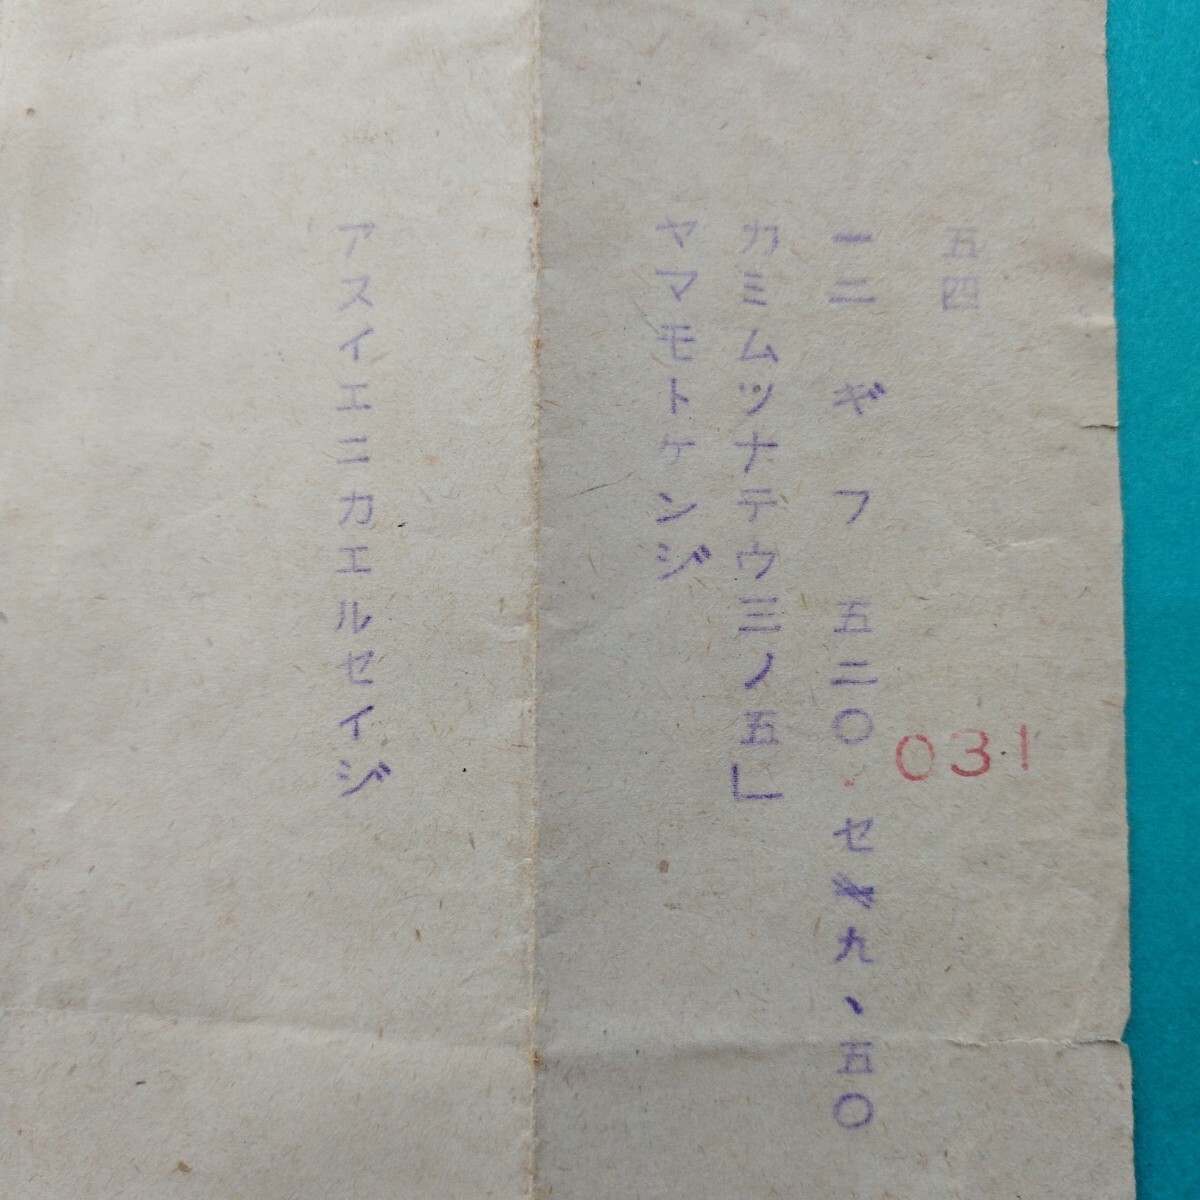 五四
一二 ギ フ 五二〇 セ 九、五〇
031
カミムツナテウ三ノ五」
ヤマモトケンジ
アスイエニカエルセイジ